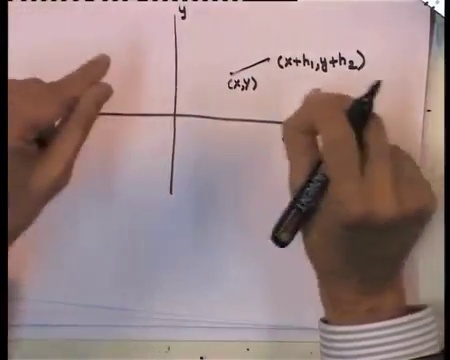 y
(x+h₁,y+h₂)
(x,y)